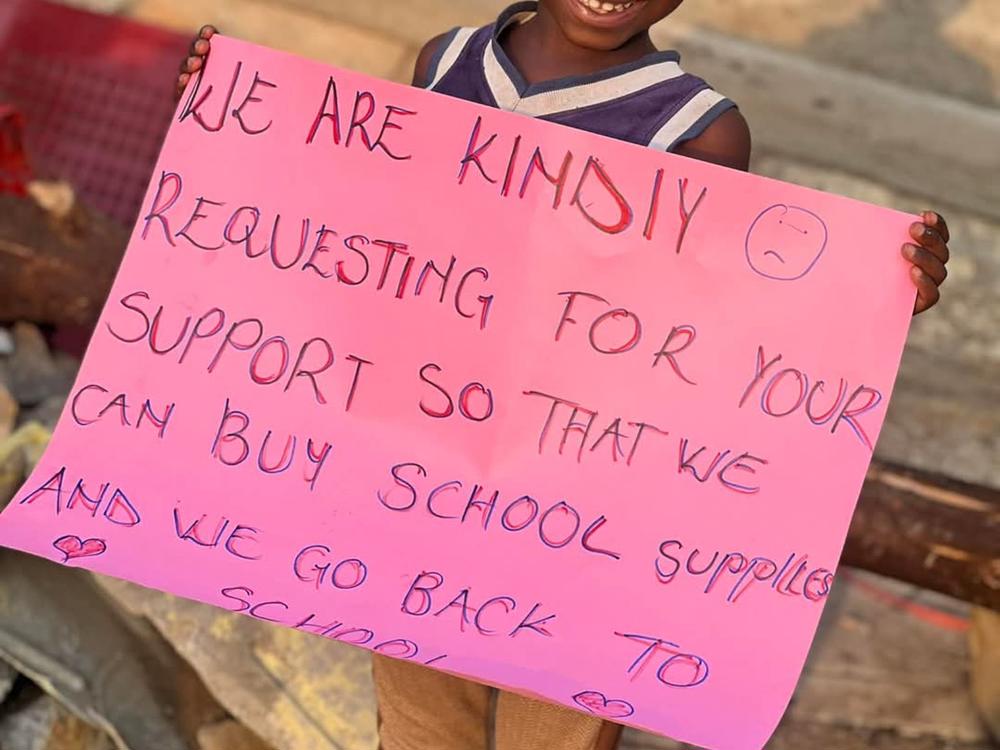 WE ARE KINDIY
REQUESTING FOR YOUR
SUPPORT SO THAT WE
CAN BUY SCHOOL SUPPILES
AND WE GO BACK TO
SCHOOL